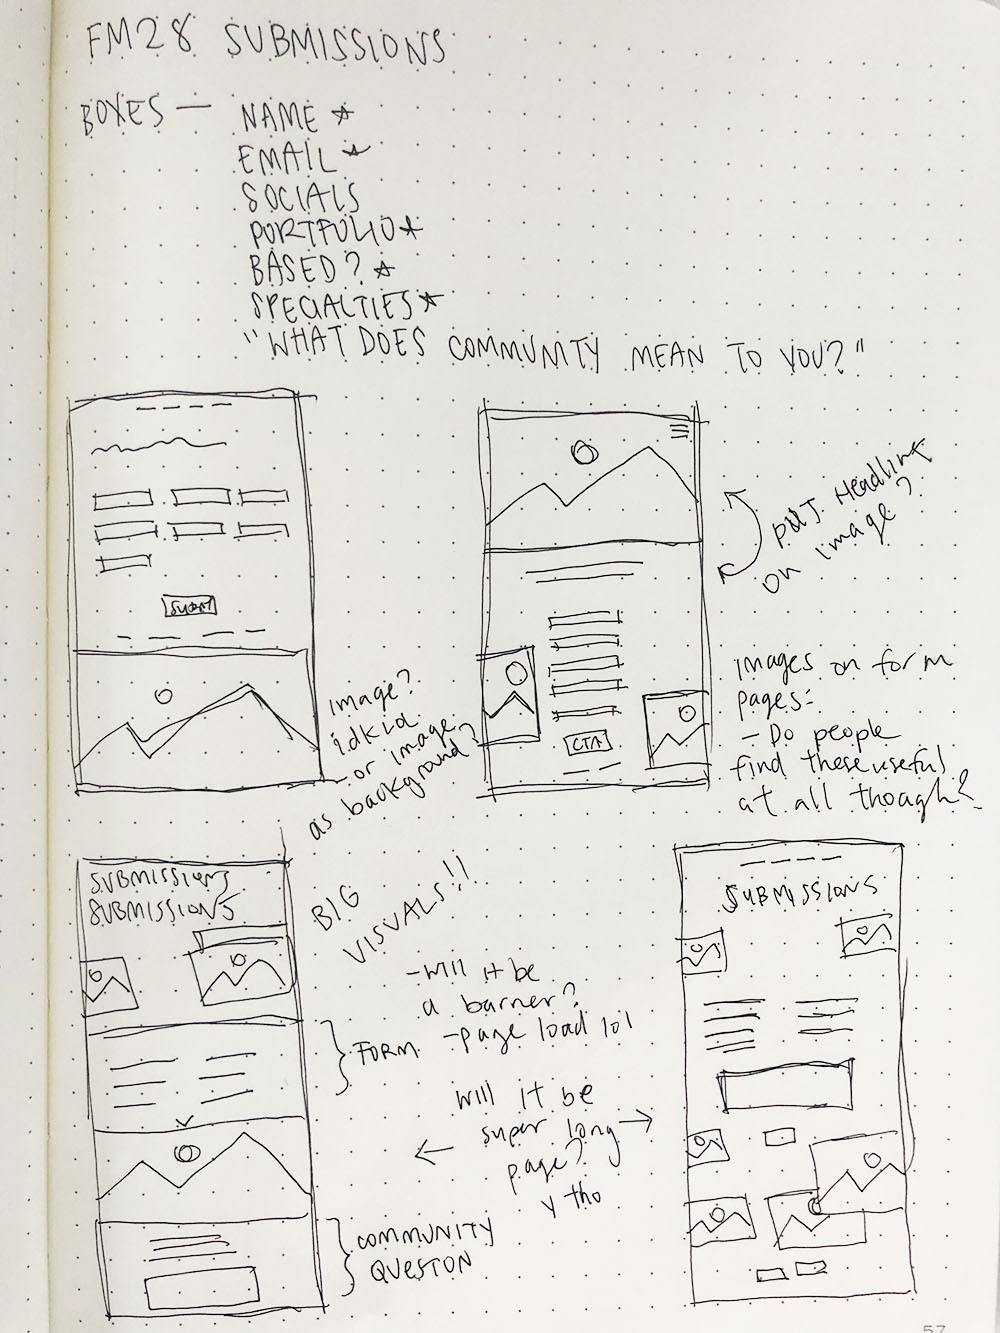 FM28 SUBMISSIONS
BOXES — NAME ☆
EMAIL ☆
SOCIALS
PORTFOLIO ☆
BASED? ☆
SPECIALTIES ☆
"WHAT DOES COMMUNITY MEAN TO YOU?"
SUBMIT
image?
idk kid
- or image
as background?
CTA
PUT Headline
on image?
images on form
pages:
- Do people
find these useful
at all though?
SUBMISSIONS
SUBMISSIONS
BIG
VISUALS!!
- will it be
a banner?
- page load lol
} FORM
will it be
super long
page?
y tho
} COMMUNITY
QUESTON
SUBMISSIONS
57